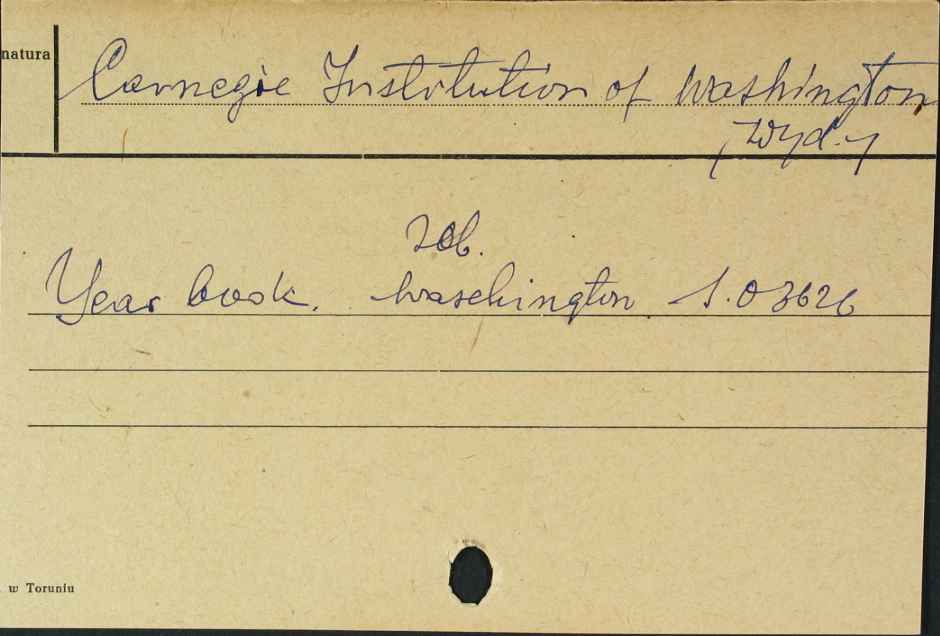 natura
Carnegie Institution of Washington
/wyd./
zob.
Year book. Waschington S.03626
w Toruniu